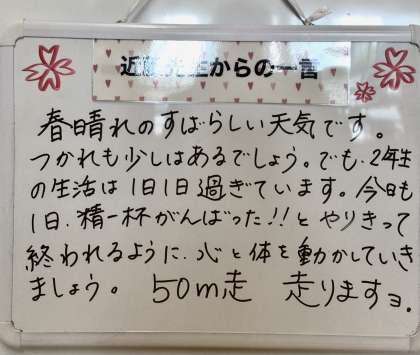 近藤先生からの一言
春晴れのすばらしい天気です。
つかれも少しはあるでしょう。でも、2年生
の生活は1日1日過ぎています。今日も
1日、精一杯がんばった!!とやりきって
終われるように、心と体を動かしていき
ましょう。 50m走 走りますョ.